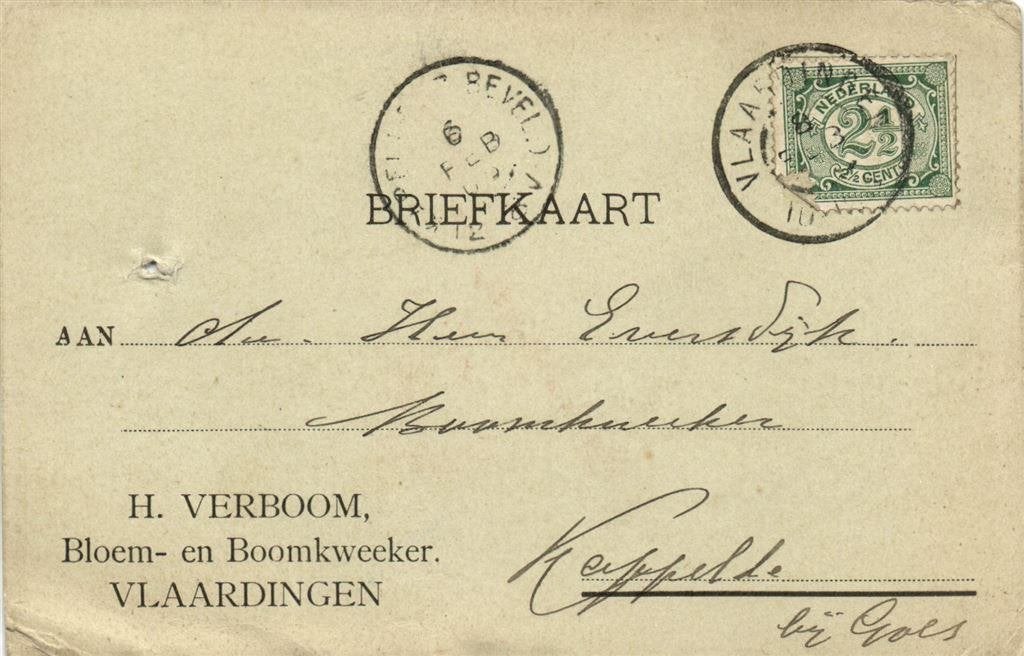 BEVEL.)
6
FEB
VLAARDINGEN
NEDERLAND
2½
2½ CENT
BRIEFKAART
AAN den Heer Eversdijk.
Boomkweeker
H. VERBOOM,
Bloem- en Boomkweeker.
VLAARDINGEN
Kappelle
bij Goes